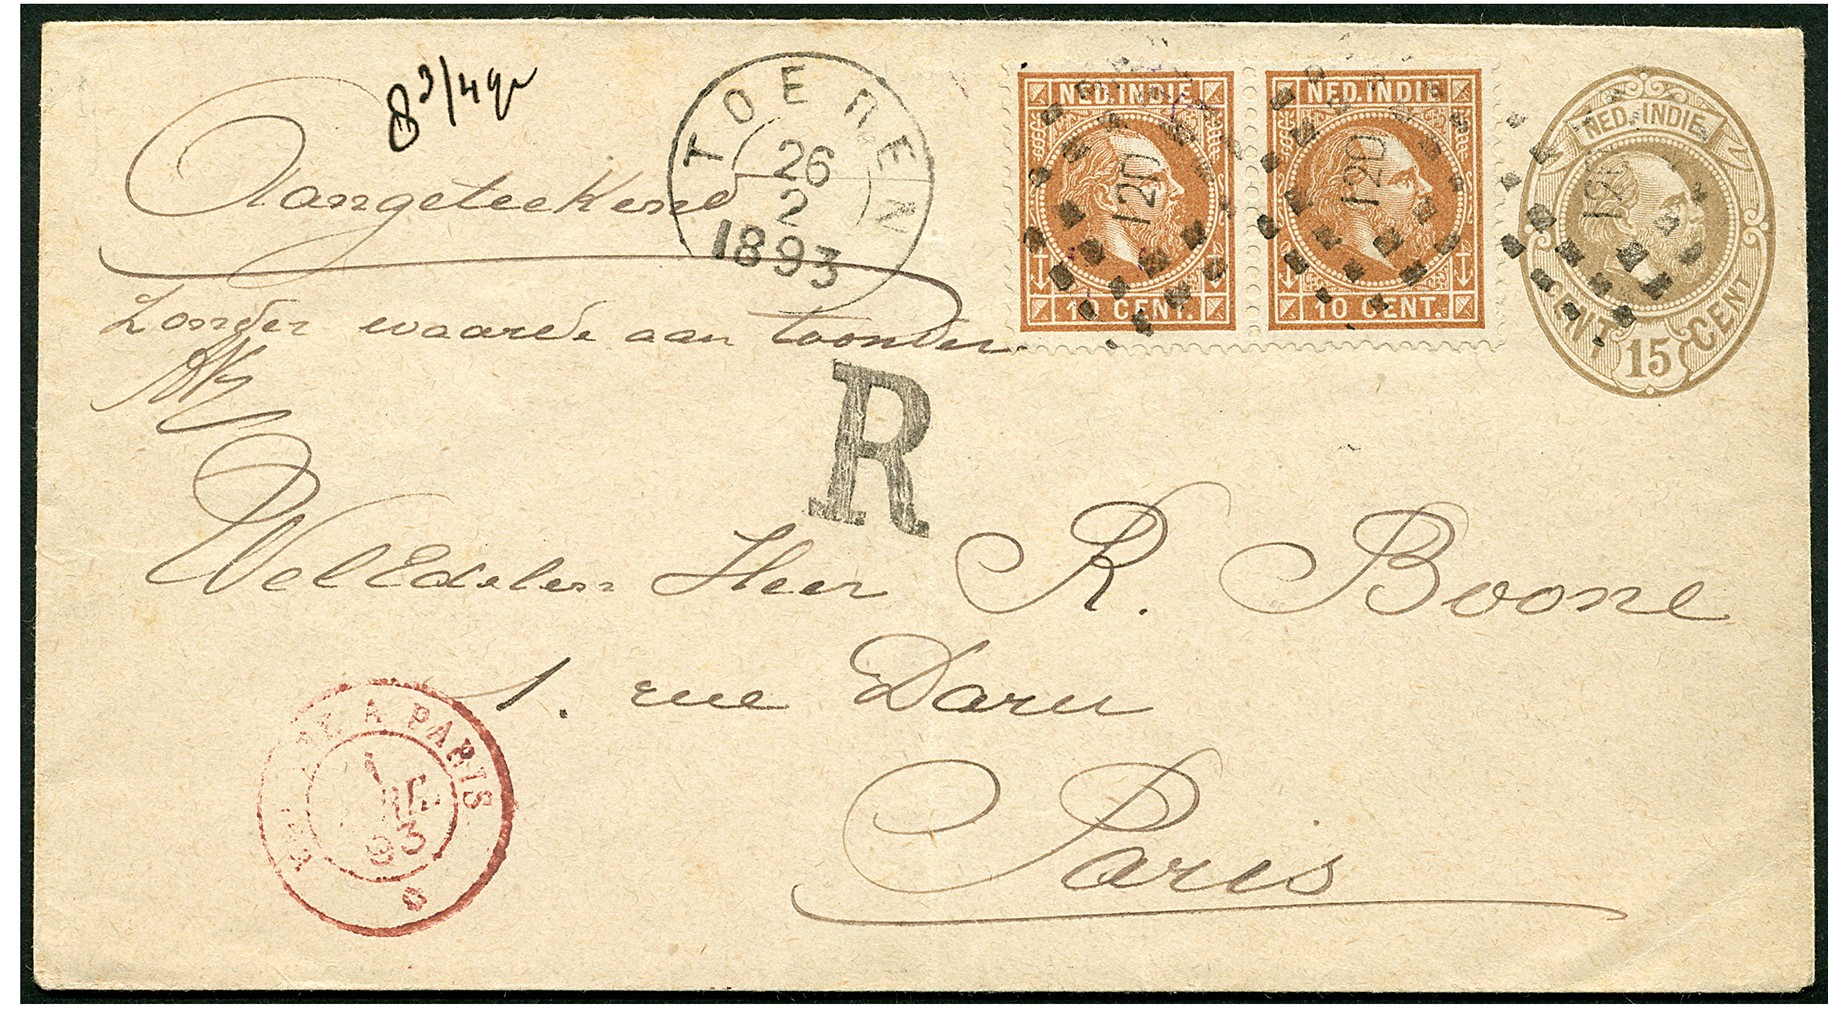 8 3/4 gr
Aangeteekend
TOEREN
26
2
1893
NED. INDIE
10 CENT.
120
NED. INDIE
10 CENT.
120
NED. INDIE
15 CENT
120
Zonder waarde aan toonder
R
WelEdelen Heer R. Boone
1. rue Daru
Paris
A PARIS
93